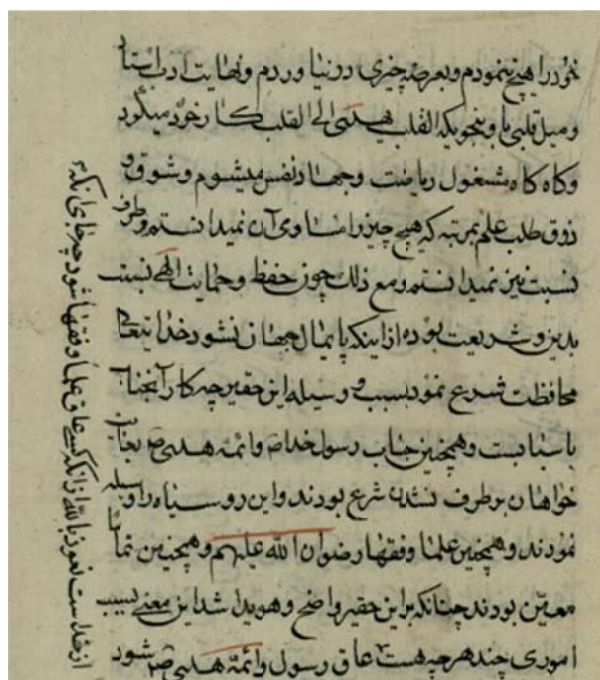 خود را هیچ ننمودم و بعرضه چیزی در دنیا وردم و نهایت ادب استاد
و میل قلبی با و بنحویکه القلب یهدی الی القلب کار خود میکرد
و کاه کاه مشغول ریاضت و جهاد نفس میشوم و شوق و
ذوق طلب علم بمرتبه که هیچ چیز را مساوی آن نمیدانستم و طرف
نسبت نیز نمیدانستم و مع ذلك چون حفظ و حمایت الهی نسبت
بدین و شریعت بوده از اینکه پایمال جهان نشود خدایتعالی
محافظت شرع نمود بسبب و وسیله این حقیر چه کار آنجناب
باسبابست و همچنین جناب رسول خدا ص و ائمه هدی ص
خواهان بر طرف نشدن شرع بودند و این رو سیاه را وسیله
نمودند و همچنین علما و فقها رضوان الله علیهم و همچنین
معین بودند چنانکه براین حقیر واضح و هویدا شد این معنی بسبب
اموری چند هر چه هست عاق رسول و ائمه هدی ص شود
از خداست نعوذ بالله از آنکه کسی عاق علما و فقها شود چه جای آنکه